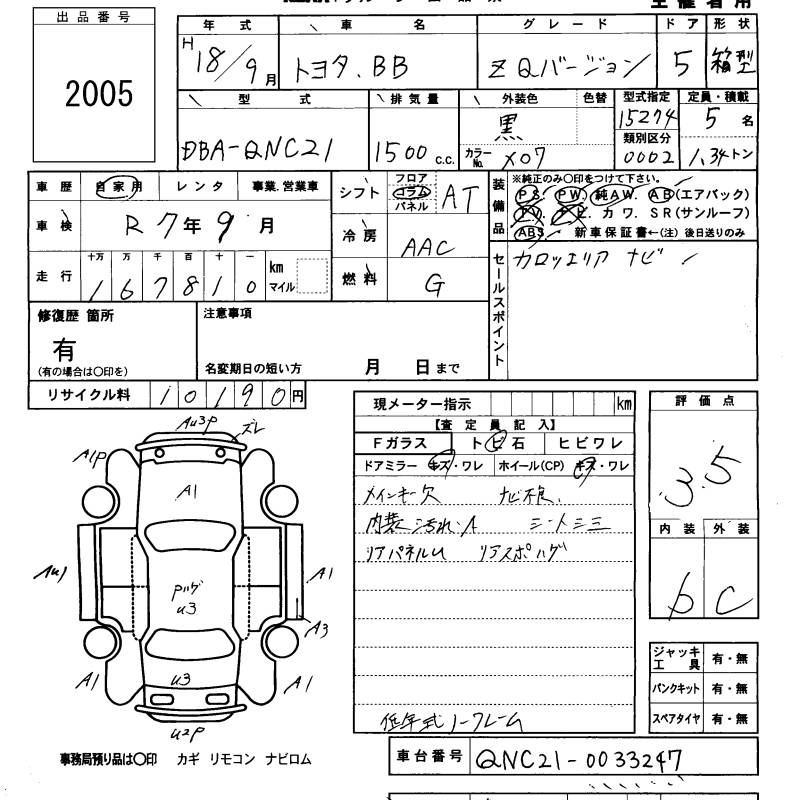 出品番号
2005
年式 車名 グレード ドア 形状
H18/9月 トヨタ.BB ZQバージョン 5 箱型
型式 排気量 外装色 色替 型式指定 定員・積載
DBA-QNC21 1500 c.c. 黒 カラーNo. X07 15274 5名
類別区分
0002 1.34トン
車歴 自家用 レンタ 事業.営業車
車検 R7年9月
走行 十万 万 千 百 十 一
167810 km マイル
シフト フロア コラム パネル AT
冷房 AAC
燃料 G
装備品
※純正のみ〇印をつけて下さい。
PS. PW. 純AW. AB(エアバック)
カワ. SR(サンルーフ)
ABS. 新車保証書←(注)後日送りのみ
セールスポイント
カロッエリア ナビ
修復歴 箇所
有
(有の場合は〇印を)
注意事項
名変期日の短い方 月 日まで
リサイクル料 10190円
現メーター指示 km
【査定員記入】
Fガラス トビ石 ヒビワレ
ドアミラー キズ・ワレ ホイール(CP) キズ・ワレ
メインキー欠 ナビ不良.
内装 汚れ.A シートシミ
リアパネルU リアスポハゲ
低年式ノークレーム
評価点
3.5
内装 外装
b C
ジャッキ工具 有・無
パンクキット 有・無
スペアタイヤ 有・無
Au3P ズレ
A1P
A1
Au1
A1
Pハゲ
u3
A3
A1
u3
A1
u2P
事務局預り品は〇印 カギ リモコン ナビロム
車台番号 QNC21-0033247